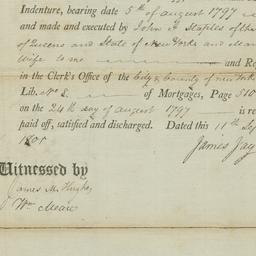 Indenture, bearing date 5th of august 1797
and made and executed by John J Staples of the
of Queens and State of New York and Mar
Wife to me — and Re
in the Clerk's Office of the City & County of new York
Lib. No 8. of Mortgages, Page 510
on the 24th day of august 1797 is re
paid off, satisfied and discharged. Dated this 11th Sep
1801
James Jay
Witnessed by
James M. Hughes
Wm Meare